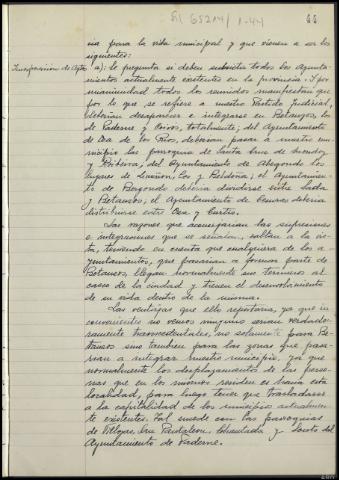 44
cia para la vida municipal y que vienen a ser los
siguientes:
Fusión de Aytos. a): Se pregunta si deben subsistir todos los Ayunta-
mientos actualmente existentes en la provincia. = Y por
unanimidad todos los reunidos manifiestan que
por lo que se refiere a nuestro Partido Judicial,
deberían desaparecer e integrarse en Betanzos, los
de Paderne y Coirós, totalmente; del Ayuntamiento
de Oza de los Ríos, deberían pasar a nuestro mu-
nicipio las parroquias de Santa Cruz de Mondoy
y Bibiera; del Ayuntamiento de Abegondo los
lugares de Limiñón, Cos y Beldoña; el Ayuntamien-
to de Bergondo debería dividirse entre Sada
y Betanzos; el Ayuntamiento de Cesuras debería
distribuirse entre Oza y Curtis.
Las razones que aconsejarían las supresiones
e integraciones que se señalan, saltan a la vis-
ta, teniendo en cuenta que cualquiera de los a-
yuntamientos, que pasarían a formar parte de
Betanzos, llegan normalmente sus términos al
casco de la ciudad y tienen el desenvolvimiento
de su vida dentro de la misma.
Las ventajas que ello reportaría, ya que in-
convenientes no vemos ninguno serían verdadera-
mente transcendentales, no solamente para Be-
tanzos sino también para las zonas que pasa-
rían a integrar nuestro municipio, ya que
normalmente los desplazamientos de las perso-
nas que en los mismos residen es hacia esta
localidad, para luego tener que trasladarse
a la capitalidad de los municipios actualmen-
te existentes. Tal sucede con las parroquias
de Villozás, San Pantaleón, Obantada y Souto del
Ayuntamiento de Paderne.